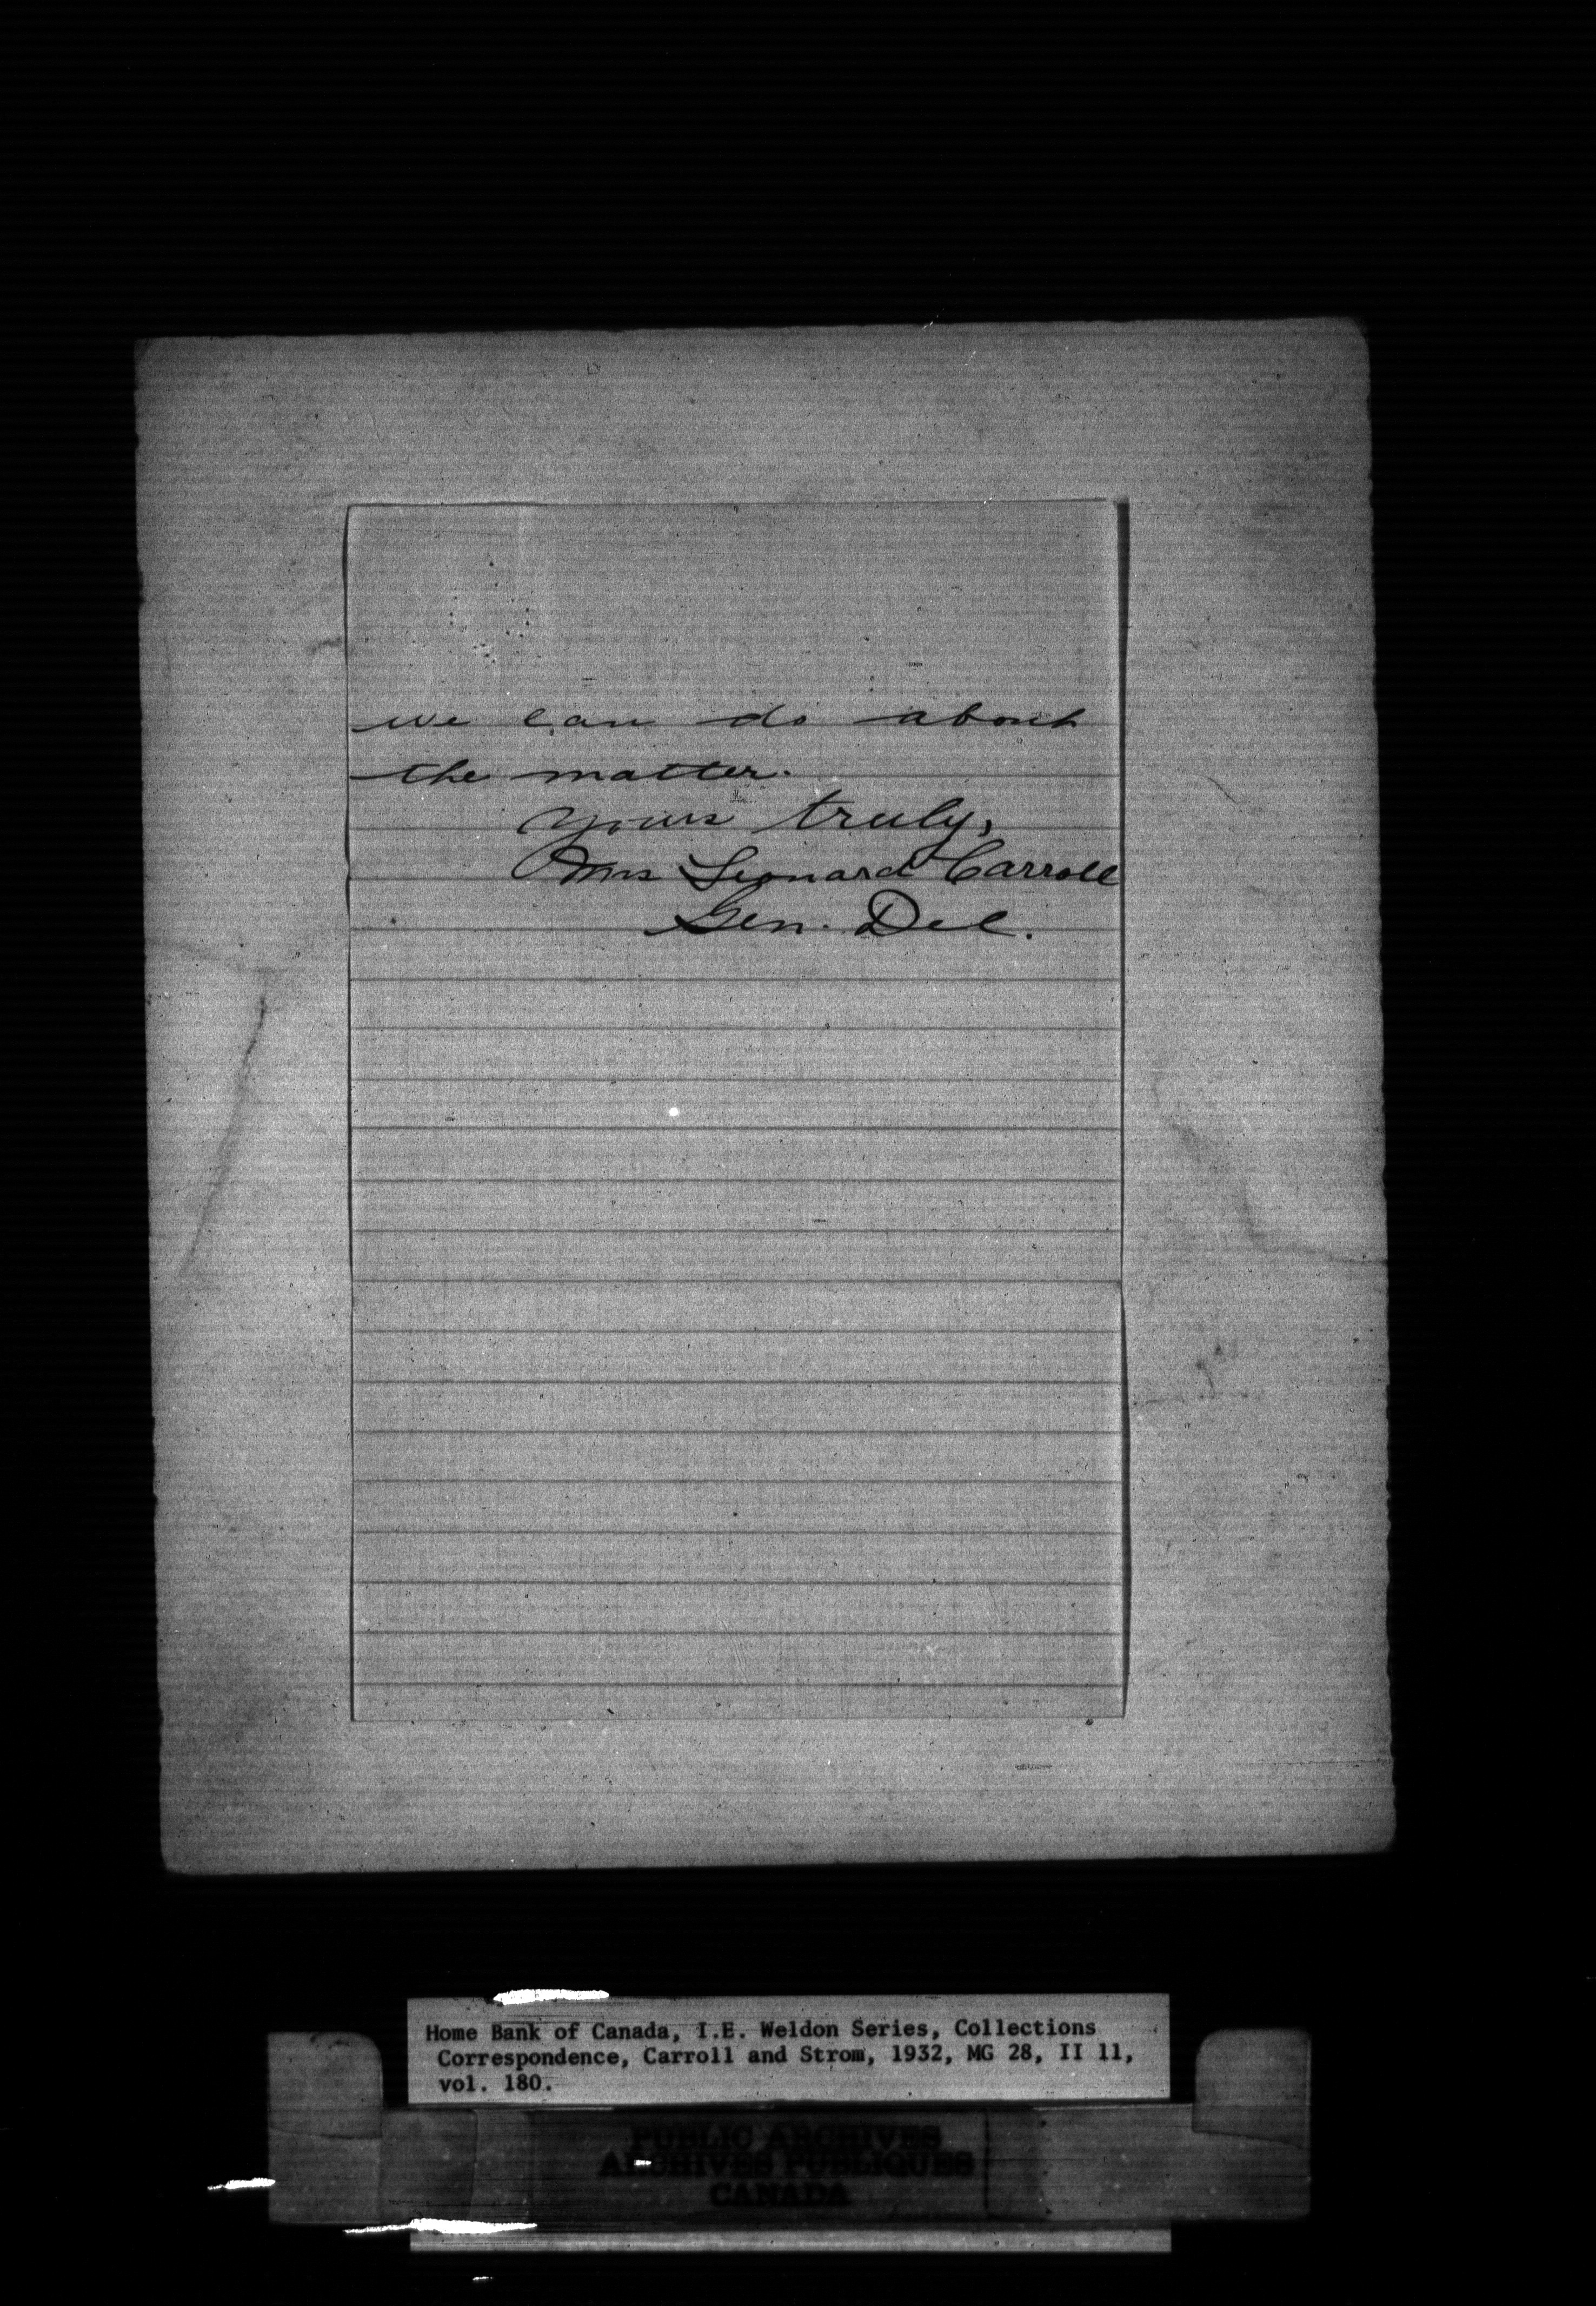 we can do about
the matter.
Yours truly,
Mrs Leonard Carroll
Gen. Del.
Home Bank of Canada, I.E. Weldon Series, Collections
Correspondence, Carroll and Strom, 1932, MG 28, II 11,
vol. 180.
PUBLIC ARCHIVES
ARCHIVES PUBLIQUES
CANADA